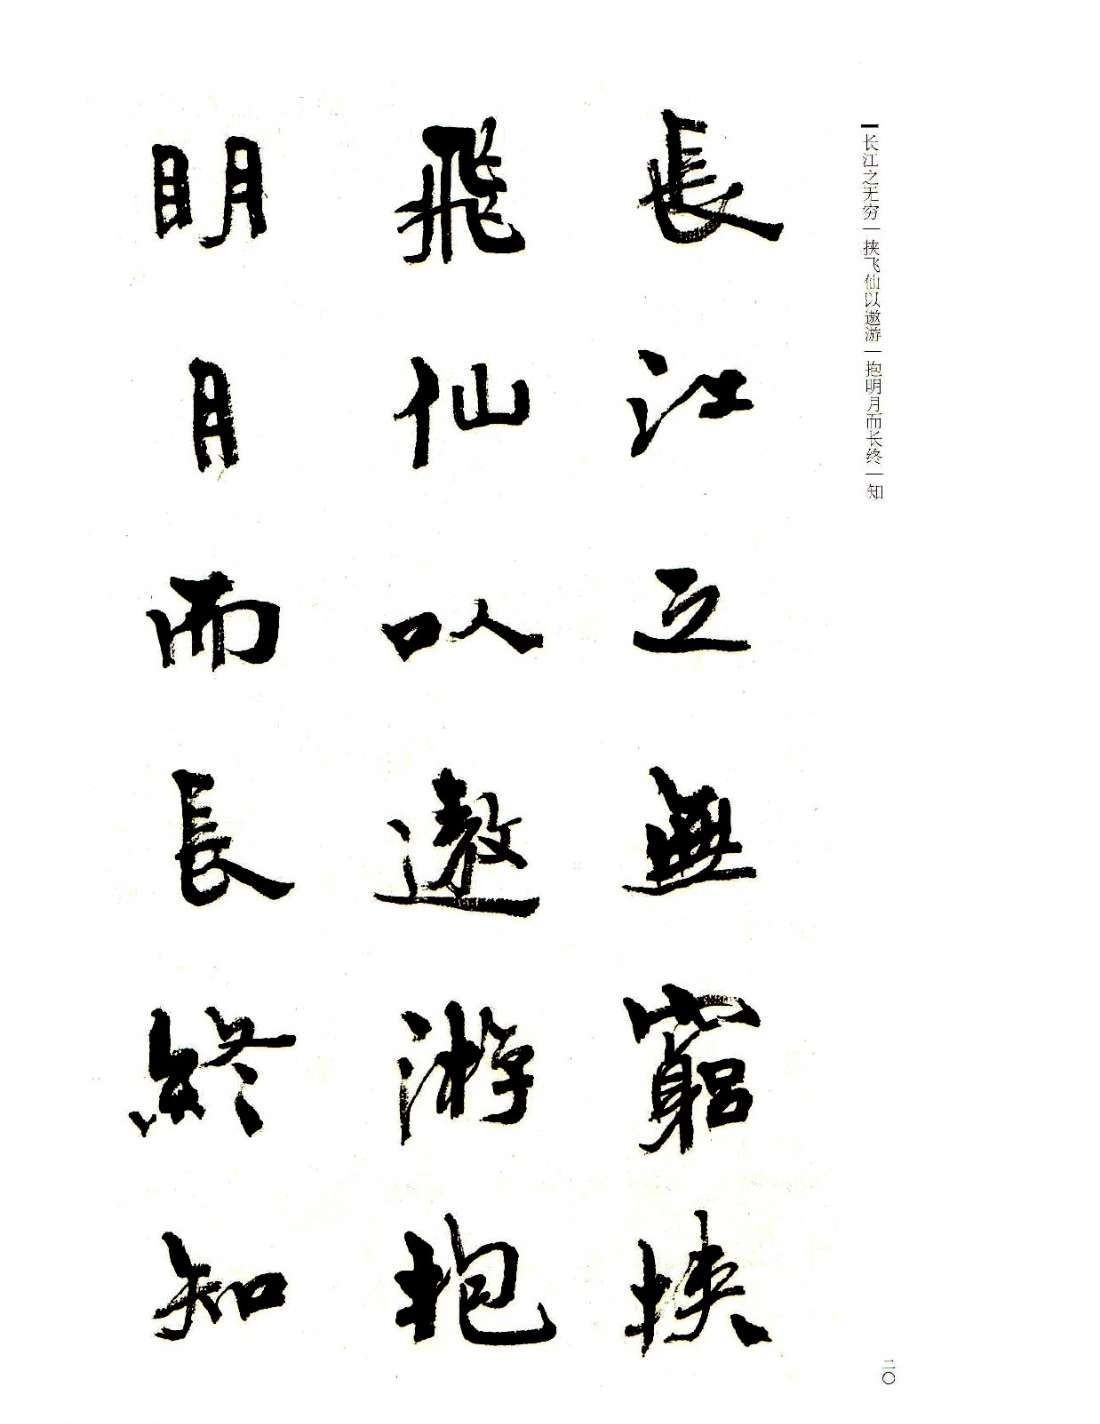 长江之无穷|挟飞仙以遨游|抱明月而长终|知
長江之無窮挾
飛仙以遨游抱
明月而長終知
二〇